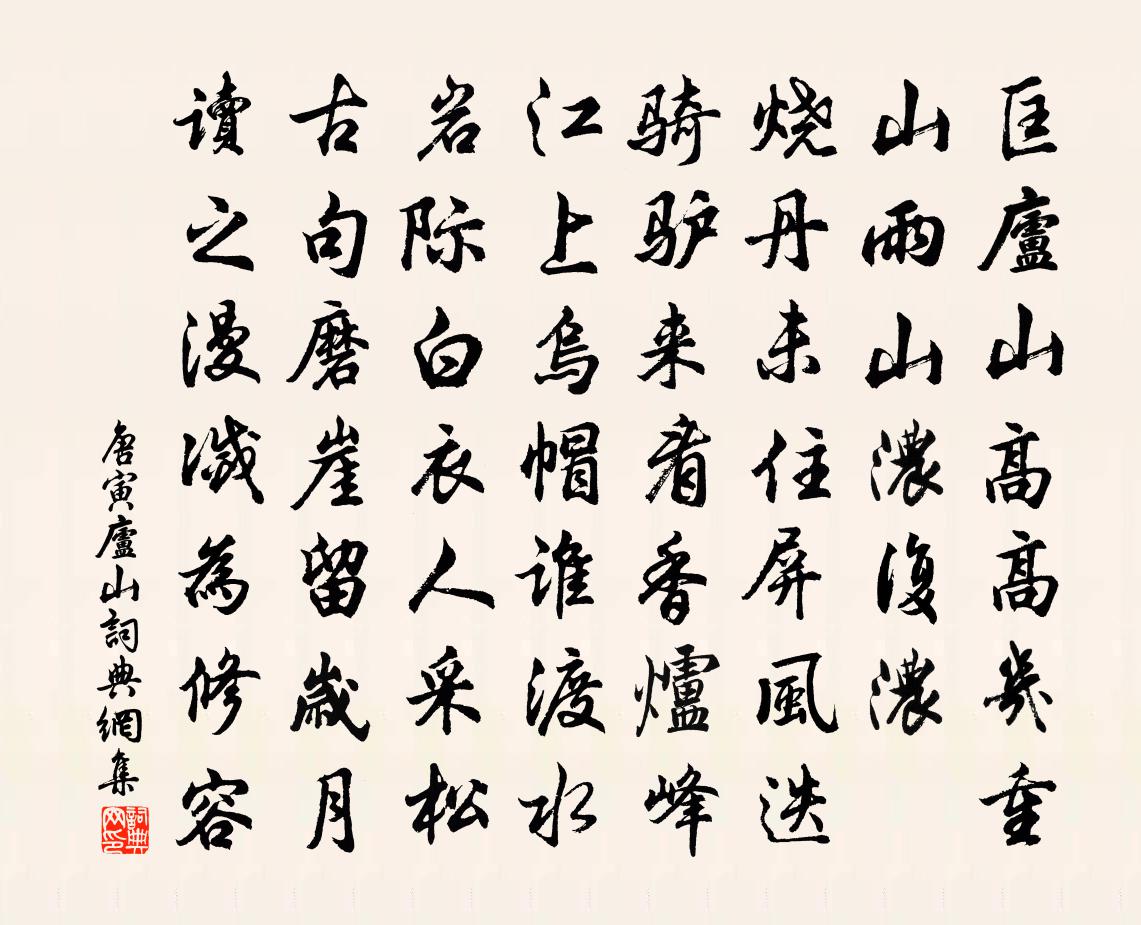 匡廬山高高幾重
山雨山濃復濃
烧丹未住屏風迭
骑驴来看香爐峰
江上烏帽谁渡水
岩际白衣人采松
古句磨崖留歲月
讀之漫滅為修容
唐寅廬山詞典網集
詞典网印